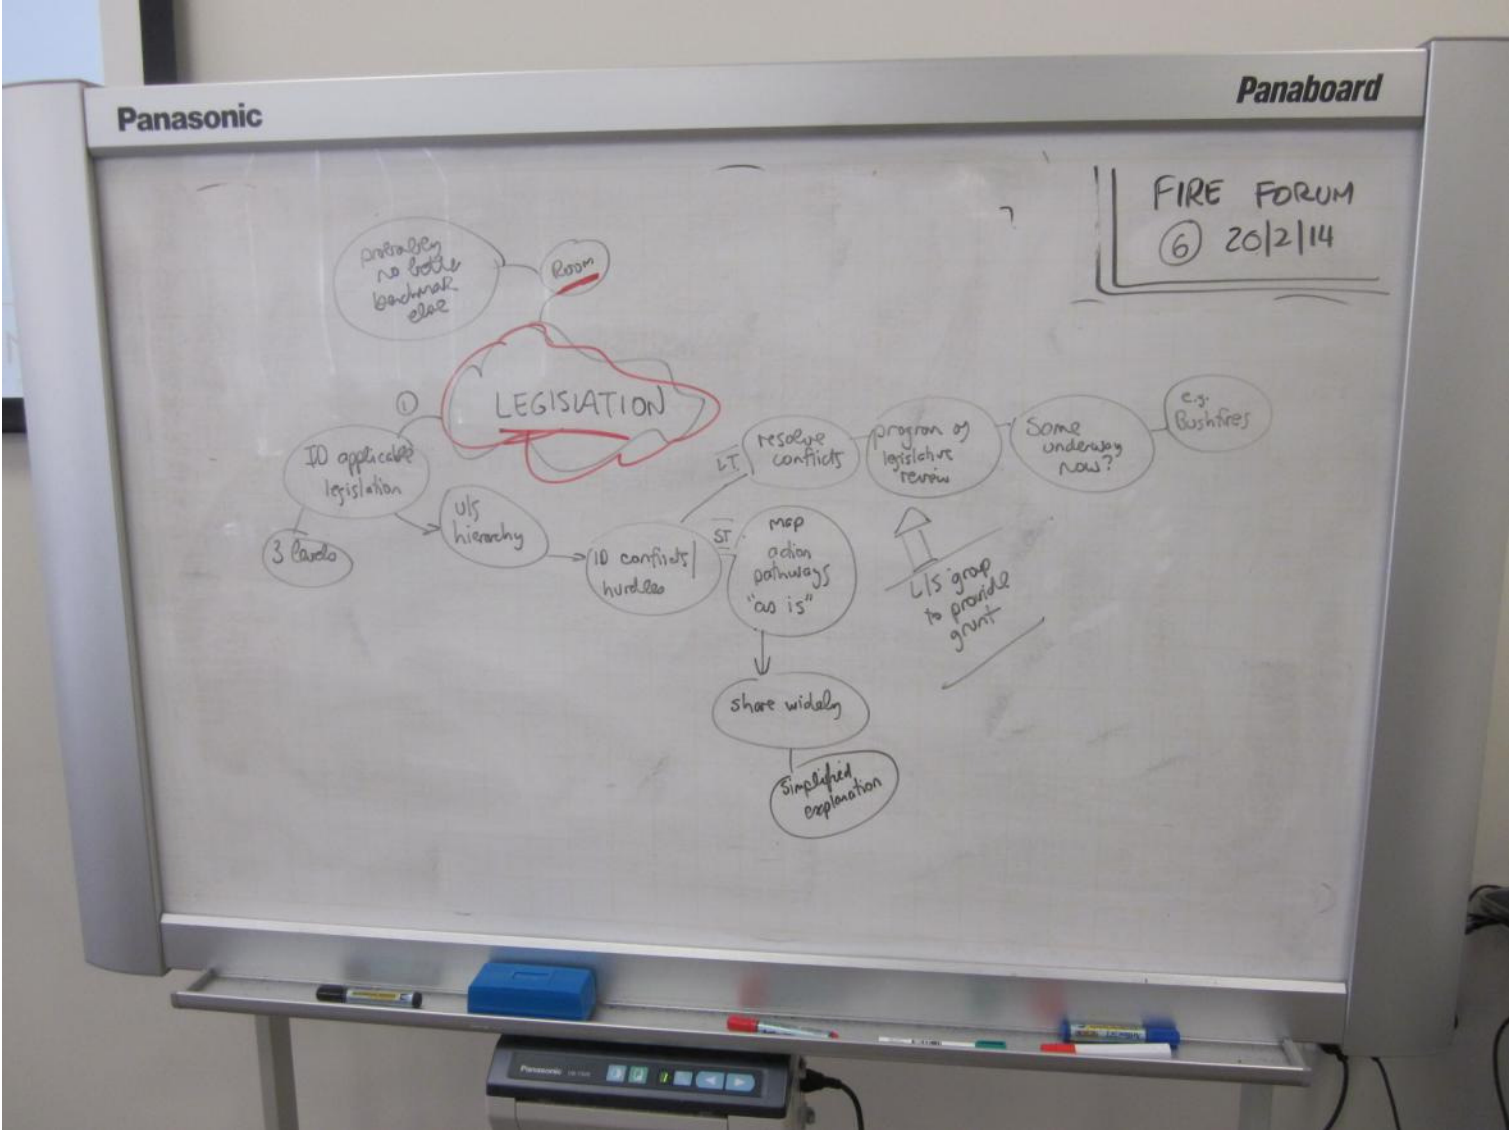 Panasonic
Panaboard
FIRE FORUM
6 20/2/14
probably
no bottle
benchmark
else
Room
LEGISLATION
1
ID applicable
legislation
3 levels
U/S
hierarchy
ID conflicts/
hurdles
LT
resolve
conflicts
program of
legislative
review
Some
underway
now?
e.g.
Bushfires
ST
map
action
pathways
"as is"
L/S group
to provide
grunt
share widely
simplified
explanation
Panasonic